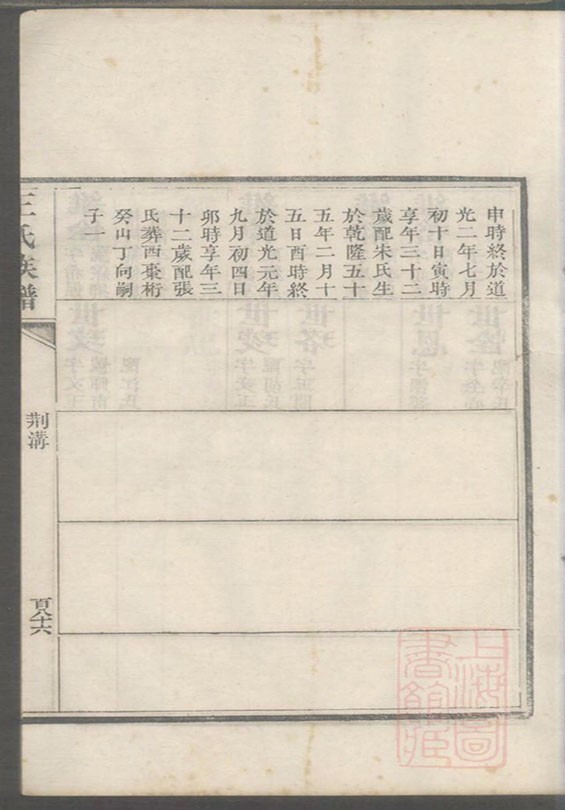 申時終於道
光二年七月
初十日寅時
享年三十二
歲配朱氏生
於乾隆五十
五年二月十
五日酉時終
於道光元年
九月初四日
卯時享年三
十二歲配張
氏葬西棗桁
癸山丁向嗣
子一
王氏族譜
荆溝
百八十六
上海圖
書館藏